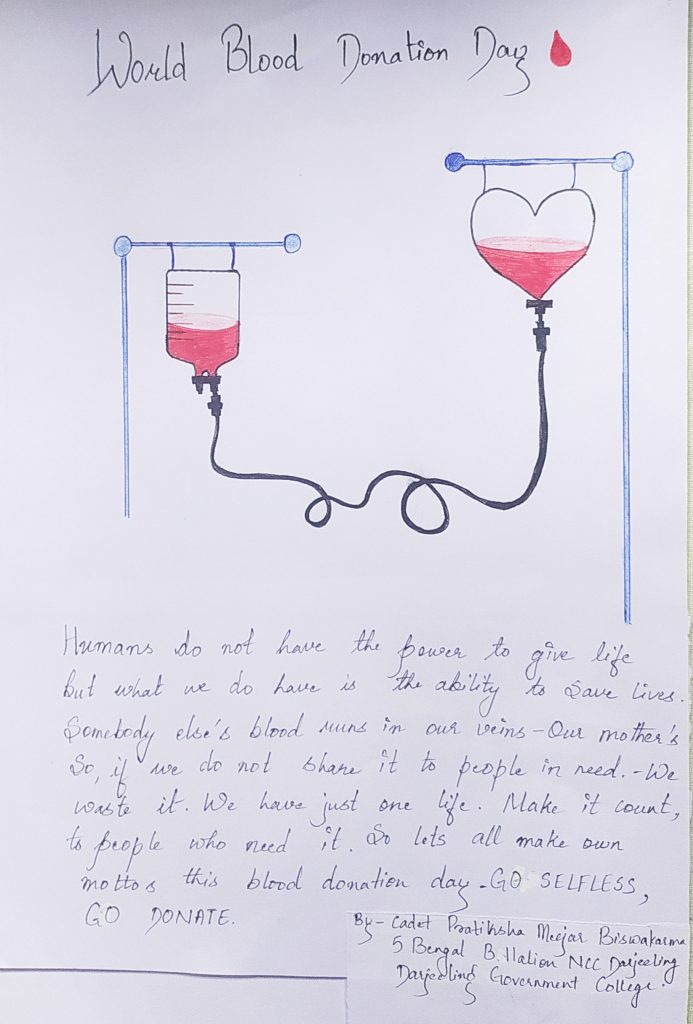 World Blood Donation Day
Humans do not have the power to give life
but what we do have is the ability to Save lives.
Somebody else's blood runs in our veins - Our mother's
So, if we do not share it to people in need. - We
waste it. We have just one life. Make it count,
to people who need it. So lets all make own
mottos this blood donation day - GO SELFLESS,
GO DONATE.
By - Cadet Pratiksha Meejar Biswakarma
5 Bengal B.Ilalion NCC Darjeeling
Darjeeling Government College.